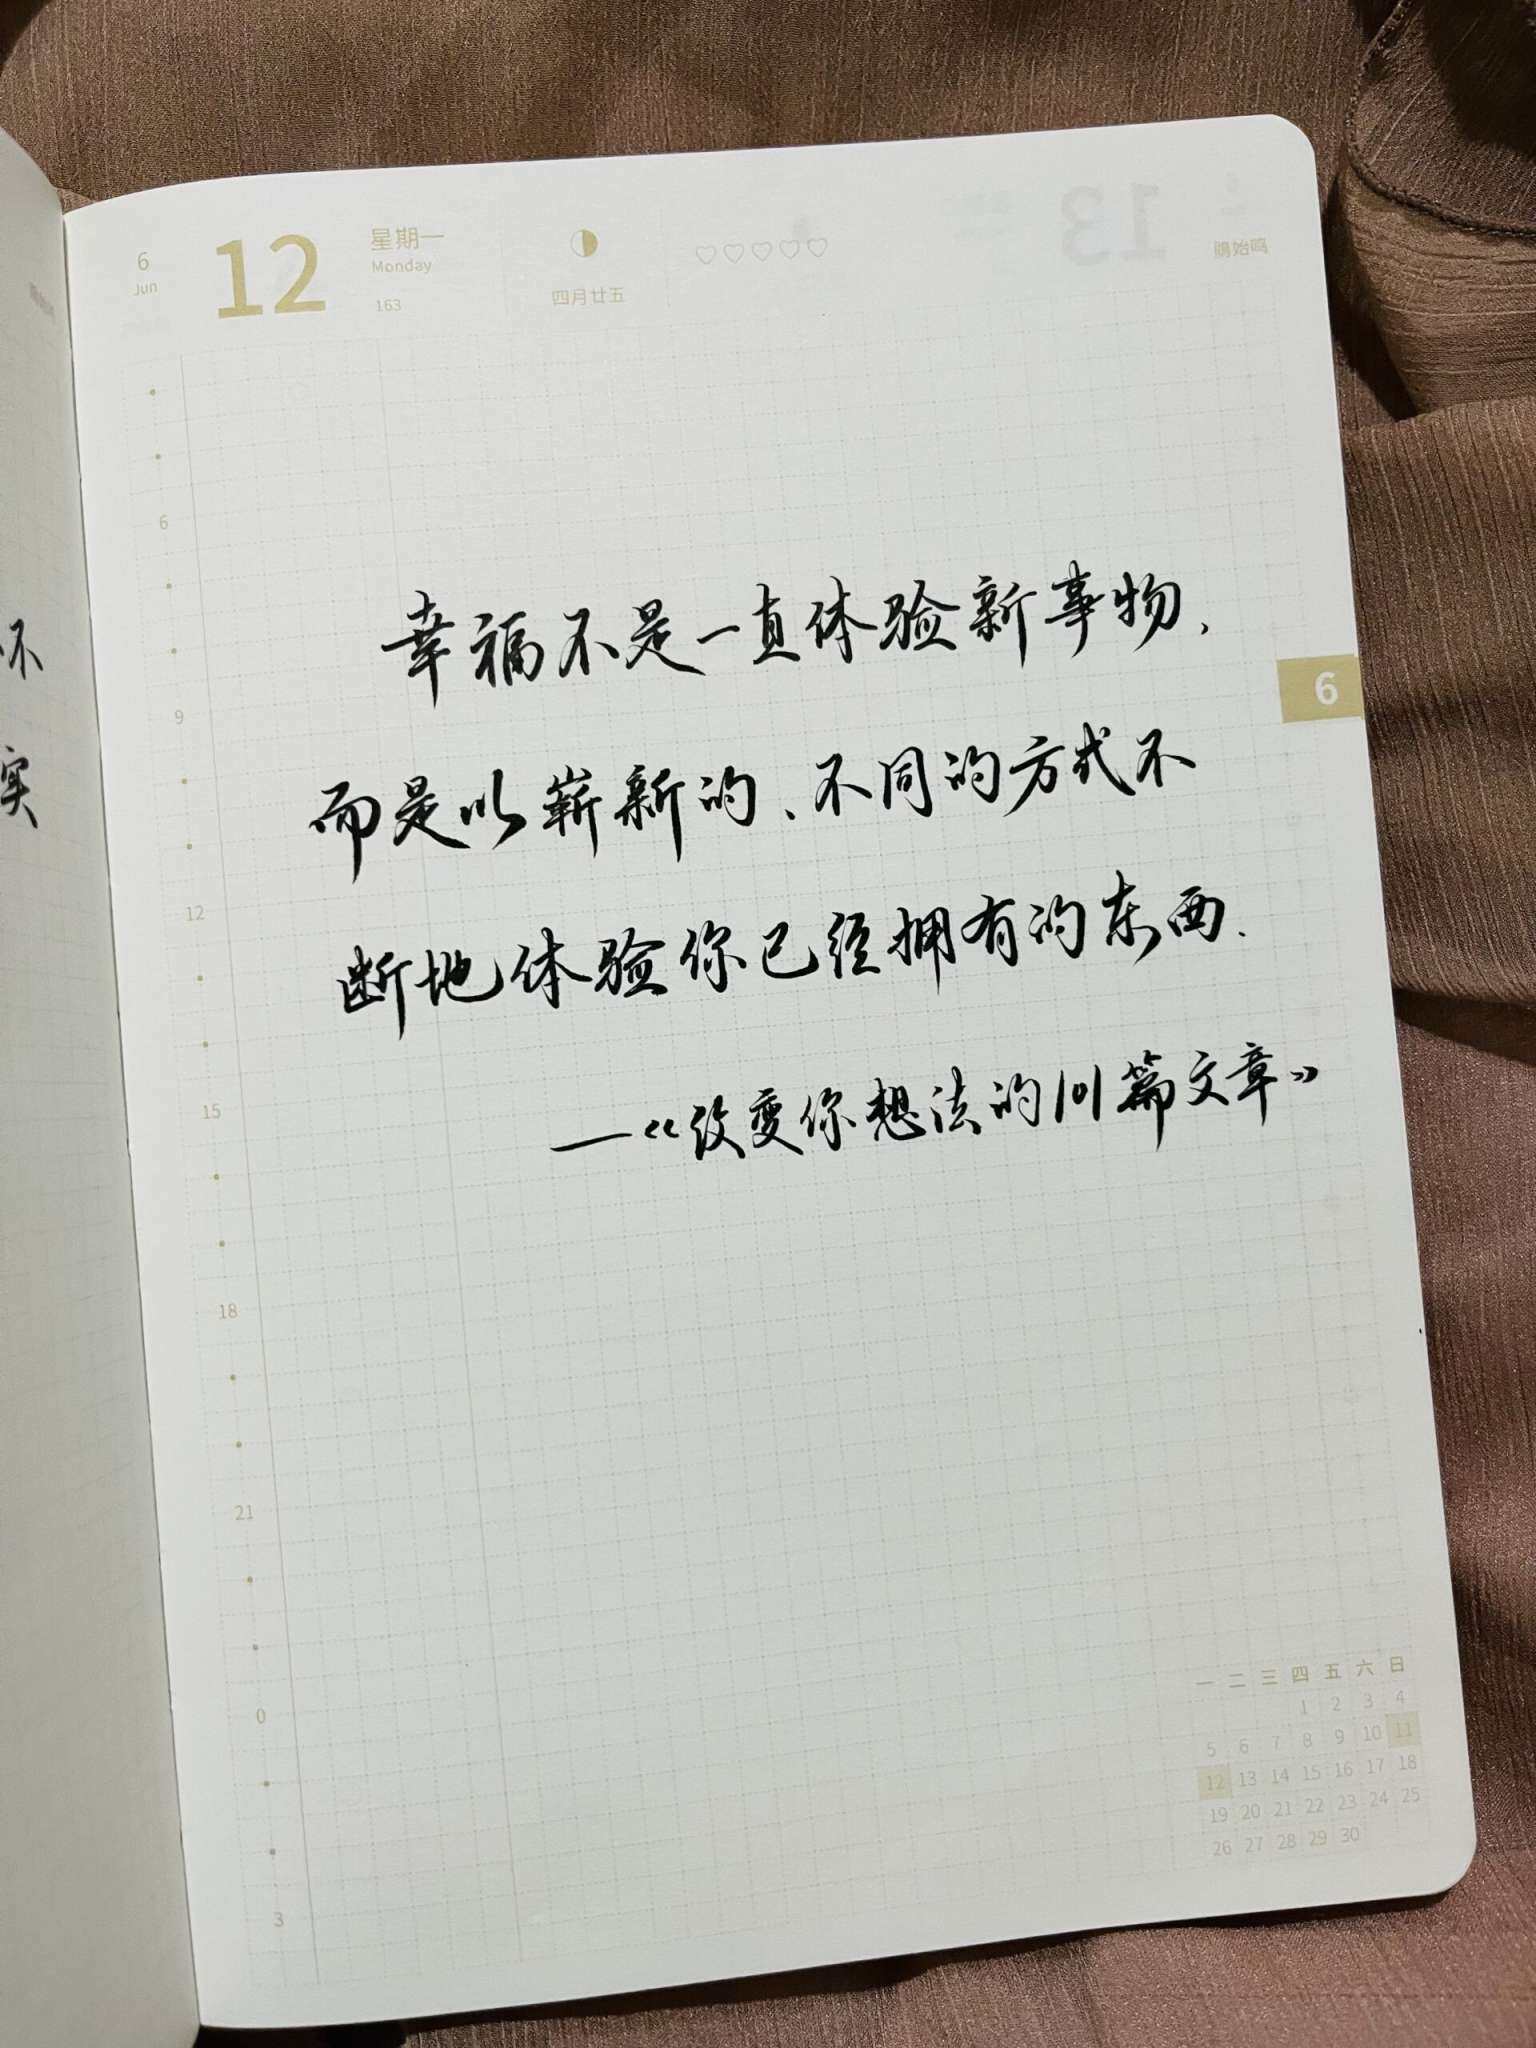 6
Jun
12
星期一
Monday
163
四月廿五
鵙始鸣
幸福不是一直体验新事物,
6
而是以崭新的、不同的方式不
断地体验你已经拥有的东西.
——《改变你想法的101篇文章》
6
9
12
15
18
21
0
3
一 二 三 四 五 六 日
1 2 3 4
5 6 7 8 9 10 11
12 13 14 15 16 17 18
19 20 21 22 23 24 25
26 27 28 29 30
不
实